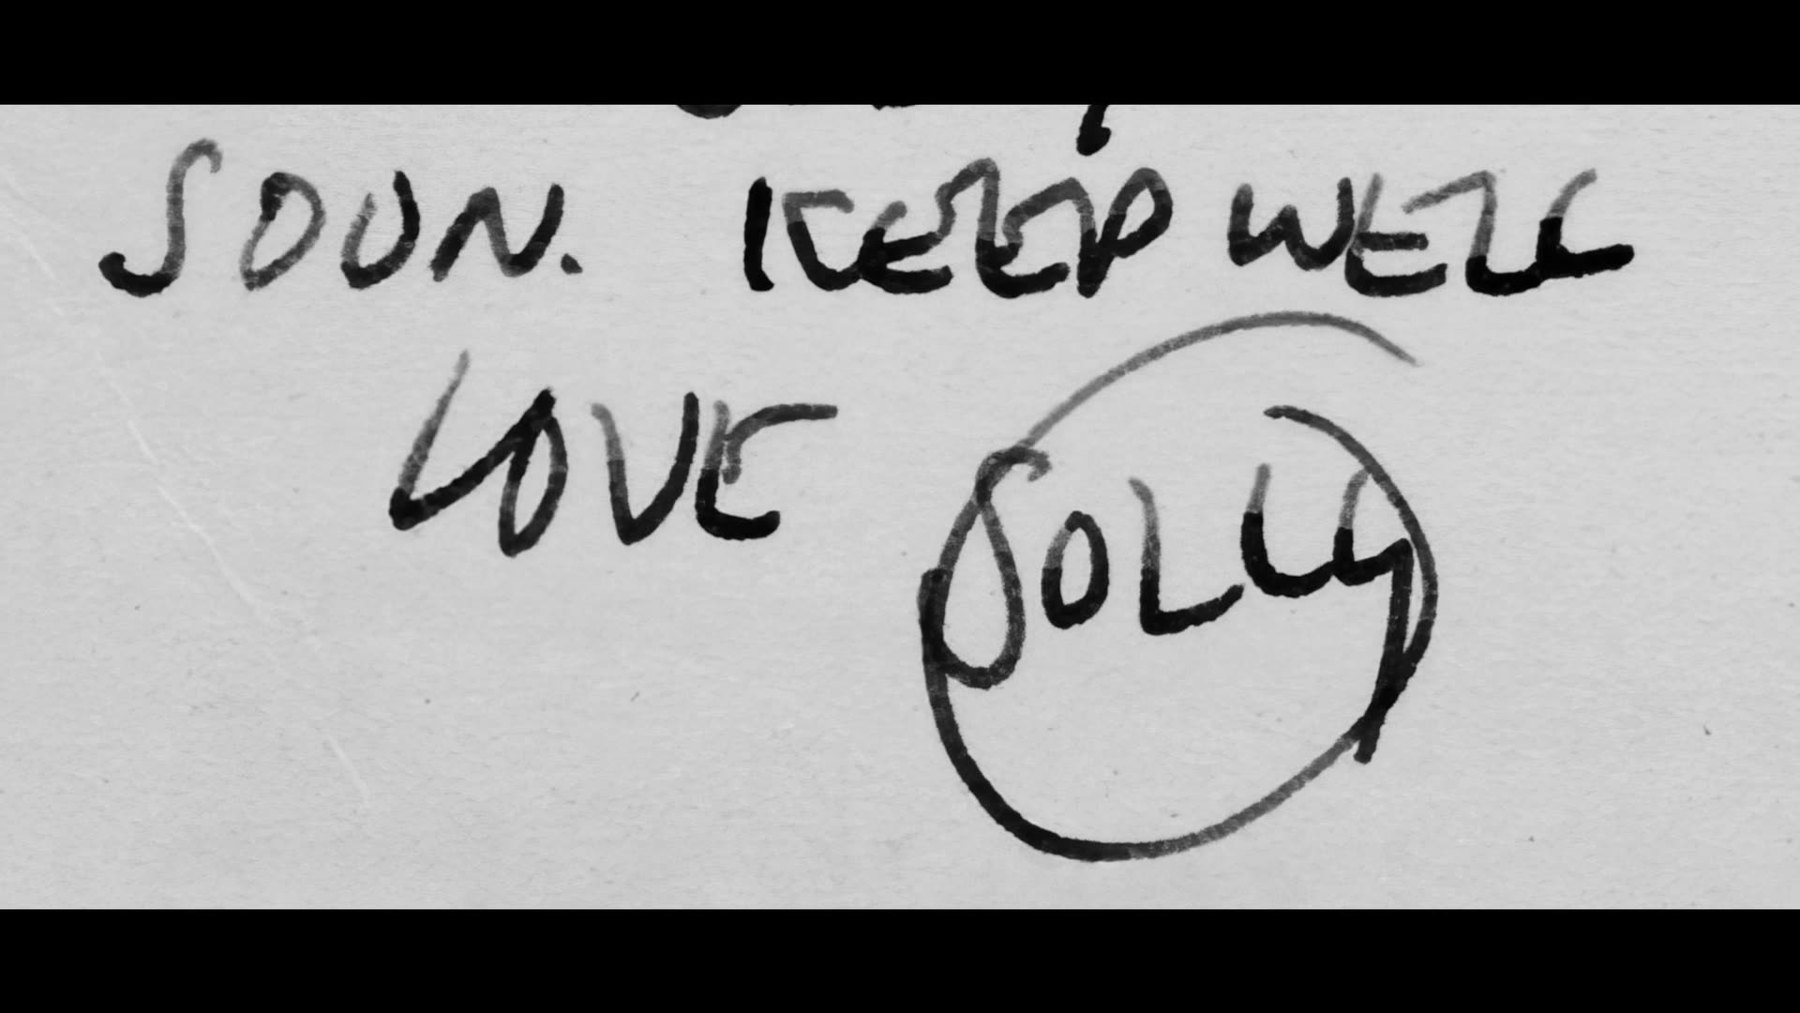 SOON. KEEP WELL
LOVE SOLLY